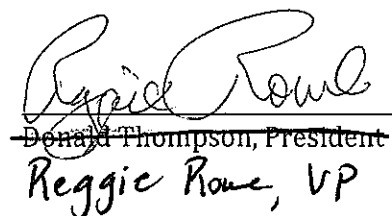 Reggie Rowe
Donald Thompson, President
Reggie Rowe, VP